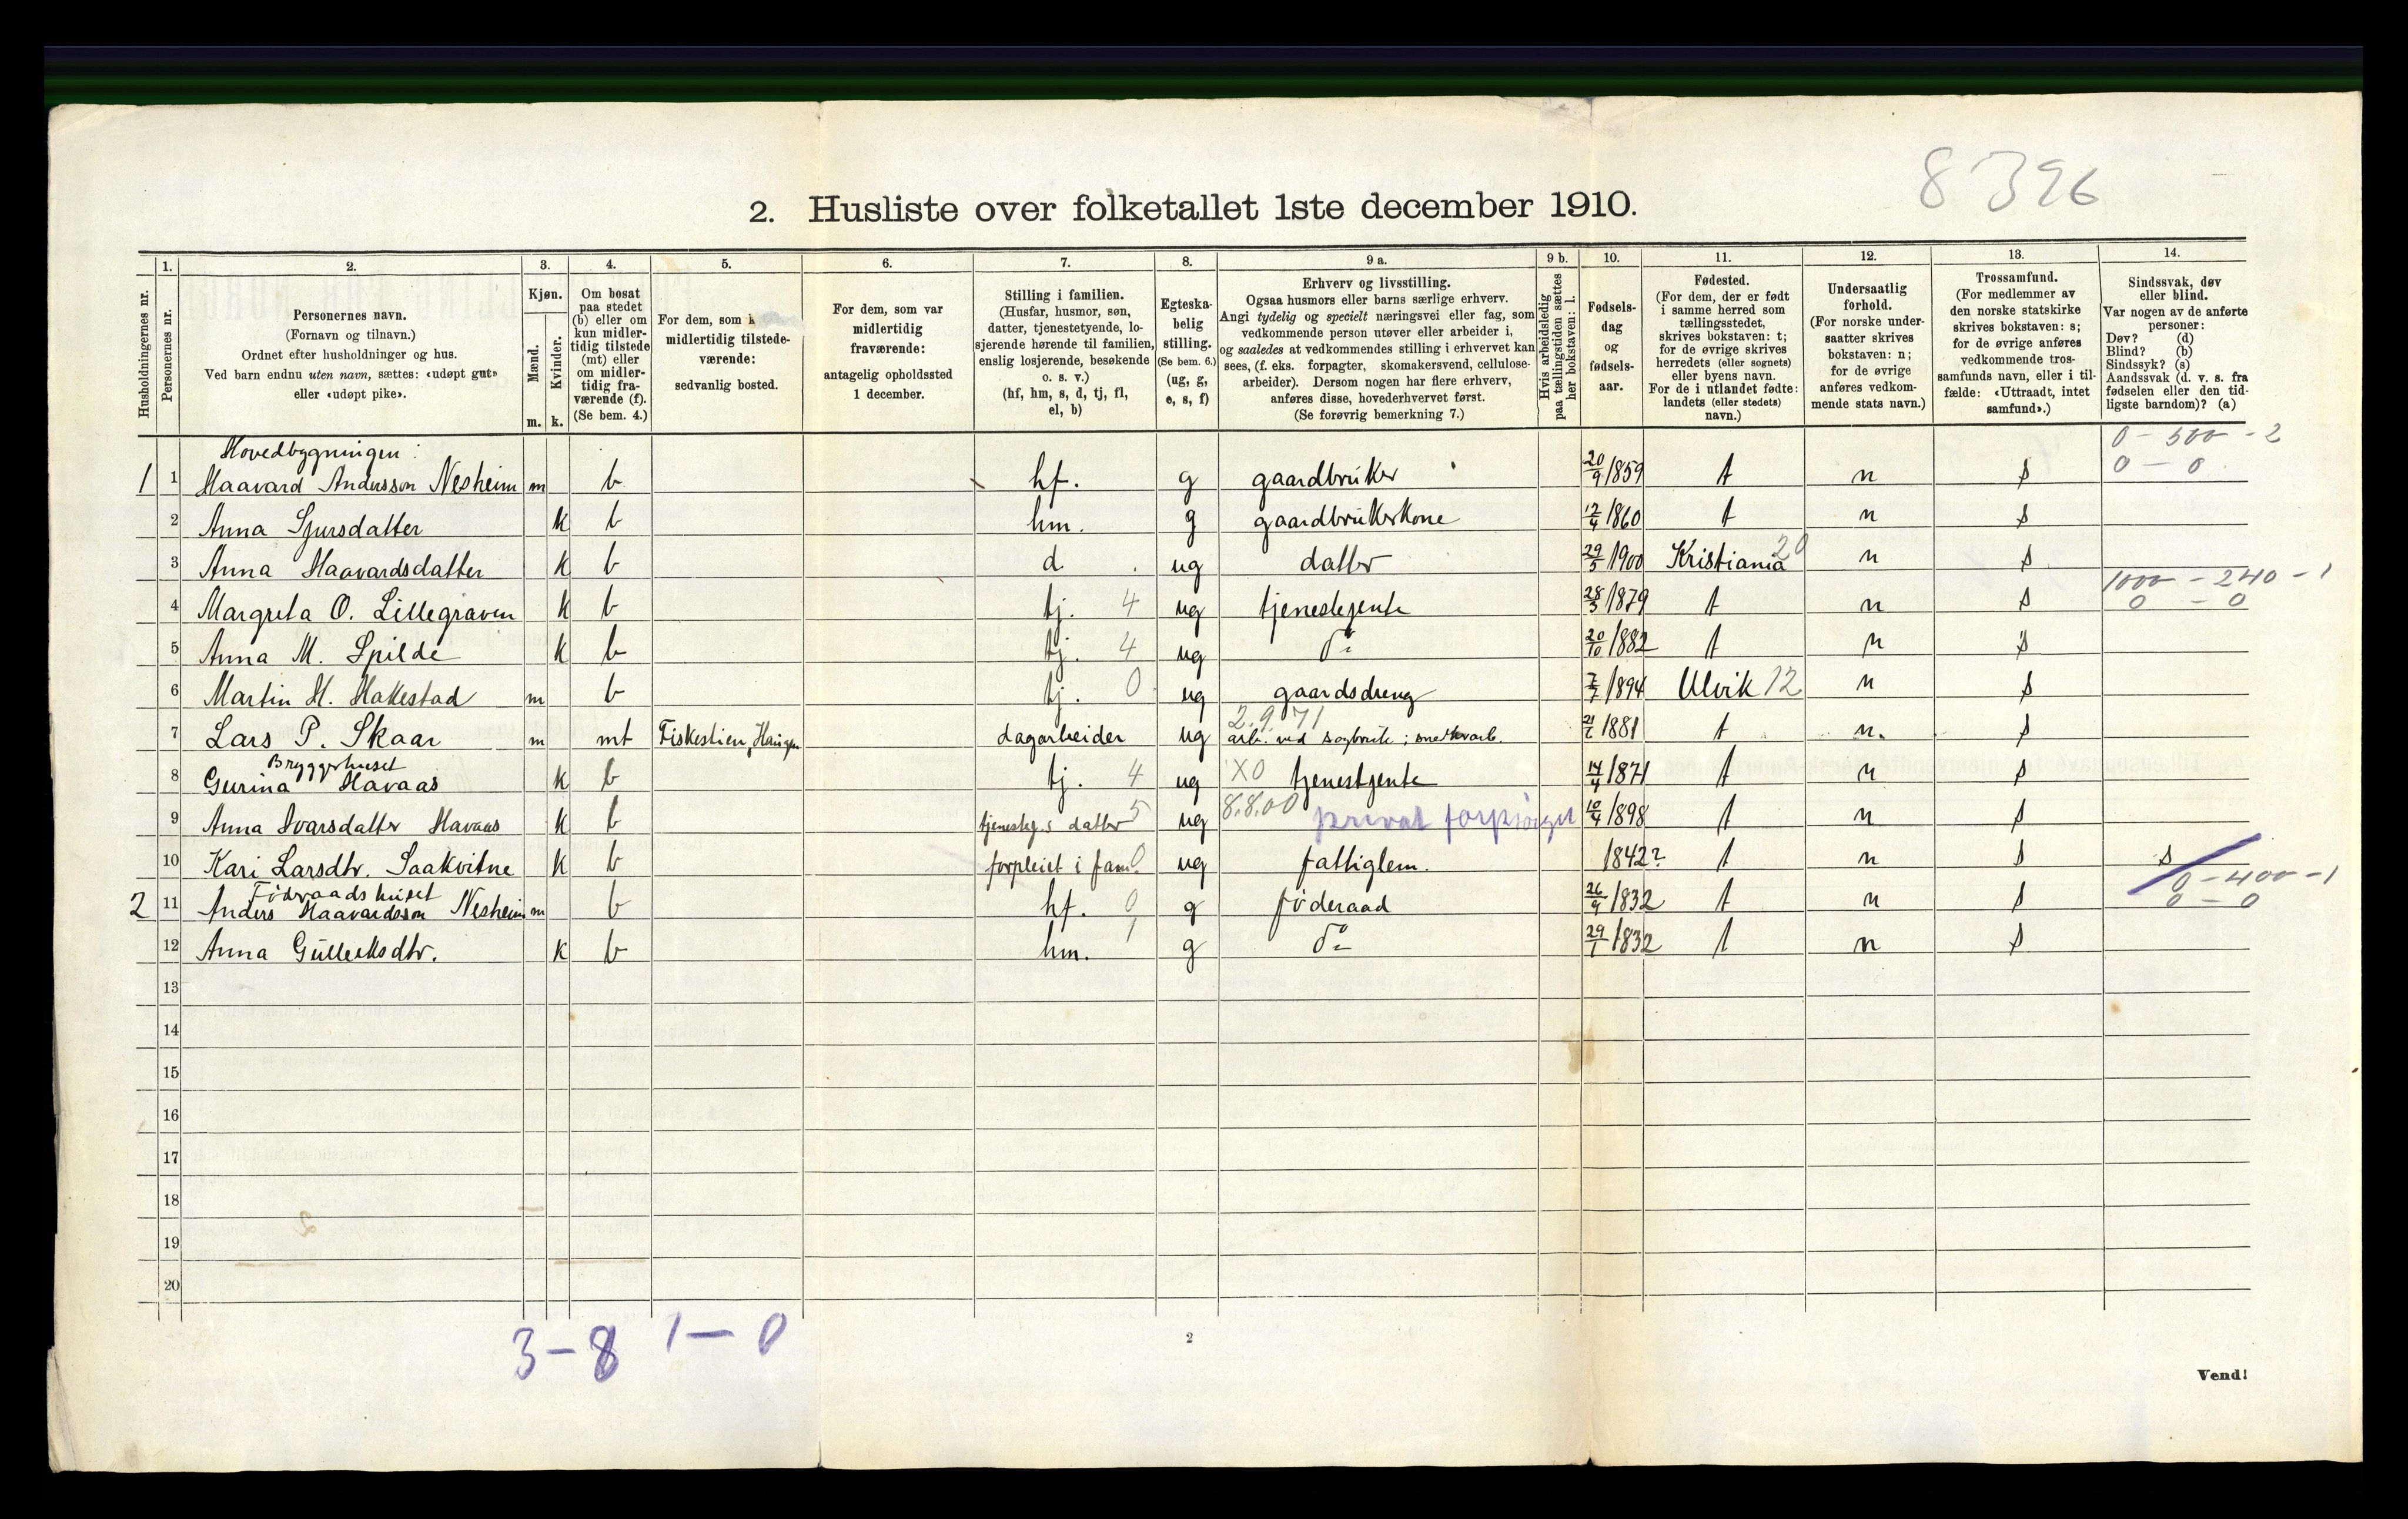 8396
2. Husliste over folketallet 1ste december 1910.
Husholdningernes nr.
1.
Personernes nr.
2.
Personernes navn.
(Fornavn og tilnavn.)
Ordnet efter husholdninger og hus.
Ved barn endnu uten navn, sættes: «udøpt gut»
eller «udøpt pike».
3.
Kjøn.
Mænd.
Kvinder.
m. k.
4.
Om bosat
paa stedet
(b) eller om
kun midler-
tidig tilstede
(mt) eller
om midler-
tidig fra-
værende (f).
(Se bem. 4.)
5.
For dem, som
midlertidig tilstede-
værende:
sedvanlig bosted.
6.
For dem, som var
midlertidig
fraværende:
antagelig opholdssted
1 december.
7.
Stilling i familien.
(Husfar, husmor, søn,
datter, tjenestetyende, lo-
sjerende hørende til familien,
enslig losjerende, besøkende
o. s. v.)
(hf, hm, s, d, tj, fl,
el, b)
8.
Egteska-
belig
stilling.
(Se bem. 6.)
(ug, g,
e, s, f)
9 a.
Erhverv og livsstilling.
Ogsaa husmors eller barns særlige erhverv.
Angi tydelig og specielt næringsvei eller fag, som
vedkommende person utøver eller arbeider i,
og saaledes at vedkommendes stilling i erhvervet kan
sees, (f. eks. forpagter, skomakersvend, cellulose-
arbeider). Dersom nogen har flere erhverv,
anføres disse, hovederhvervet først.
(Se forøvrig bemerkning 7.)
9 b.
Hvis arbeidsledig
paa tællingstiden sættes
her bokstaven: l.
10.
Fødsels-
dag
og
fødsels-
aar.
11.
Fødested.
(For dem, der er født
i samme herred som
tællingsstedet,
skrives bokstaven: t;
for de øvrige skrives
herredets (eller sognets)
eller byens navn.
For de i utlandet fødte:
landets (eller stedets)
navn.)
12.
Undersaatlig
forhold.
(For norske under-
saatter skrives
bokstaven: n;
for de øvrige
anføres vedkom-
mende stats navn.)
13.
Trossamfund.
(For medlemmer av
den norske statskirke
skrives bokstaven: s;
for de øvrige anføres
vedkommende tros-
samfunds navn, eller i til-
fælde: «Uttraadt, intet
samfund».)
14.
Sindssvak, døv
eller blind.
Var nogen av de anførte
personer:
Døv? (d)
Blind? (b)
Sindssyk? (s)
Aandssvak (d. v. s. fra
fødselen eller den tid-
ligste barndom)? (a)
Hovedbygningen: 0 - 500 - 2
1 1 Haavard Andersson Nesheim m b hf. g gaardbruker 20/9 1859 t n s 0 - 0
2 Anna Sjursdatter k b hm. g gaardbrukerkone 17/4 1860 t n s
3 Anna Haavardsdatter k b d. ug datter 29/5 1900 Kristiania 20 n s
1000 - 240 - 1
4 Margreta O. Lillegraven k b tj. 4 ug tjenestejente 28/3 1879 t n s 0 - 0
5 Anna M. Spilde k b tj. 4 ug do 20/10 1882 t n s
6 Martin H. Hakestad m b tj. 0 ug gaardsdreng 7/7 1894 Ulvik 12 n s
2.9.71
7 Lars P. Skaar m mt Fiskestien, Haugen dagarbeider ug arb. ved sagbruk; snedkerarb. 1881 t n. s
Bryggerhuset
8 Gurina Havaas k b tj. 4 ug XO tjenestjente 14/4 1871 t n s
9 Anna Ivarsdatter Havaas k b tjenestej.s datter 5 ug 8.8.00 privat forpleiet 10/4 1898 t n s
10 Kari Larsdtr. Saakvitne k b forpleiet i fam. 0 ug fattiglem. 1842? t n s s
Föderaadshuset 0 - 400 - 1
2 11 Anders Haavardsson Nesheim m b hf. 0 g föderaad 26/9 1832 t n s 0 - 0
12 Anna Gulleiksdtr. k b hm. 1 g do 29/1 1832 t n s
13
14
15
16
17
18
19
20
3 - 8 1 - 0
2
Vend!